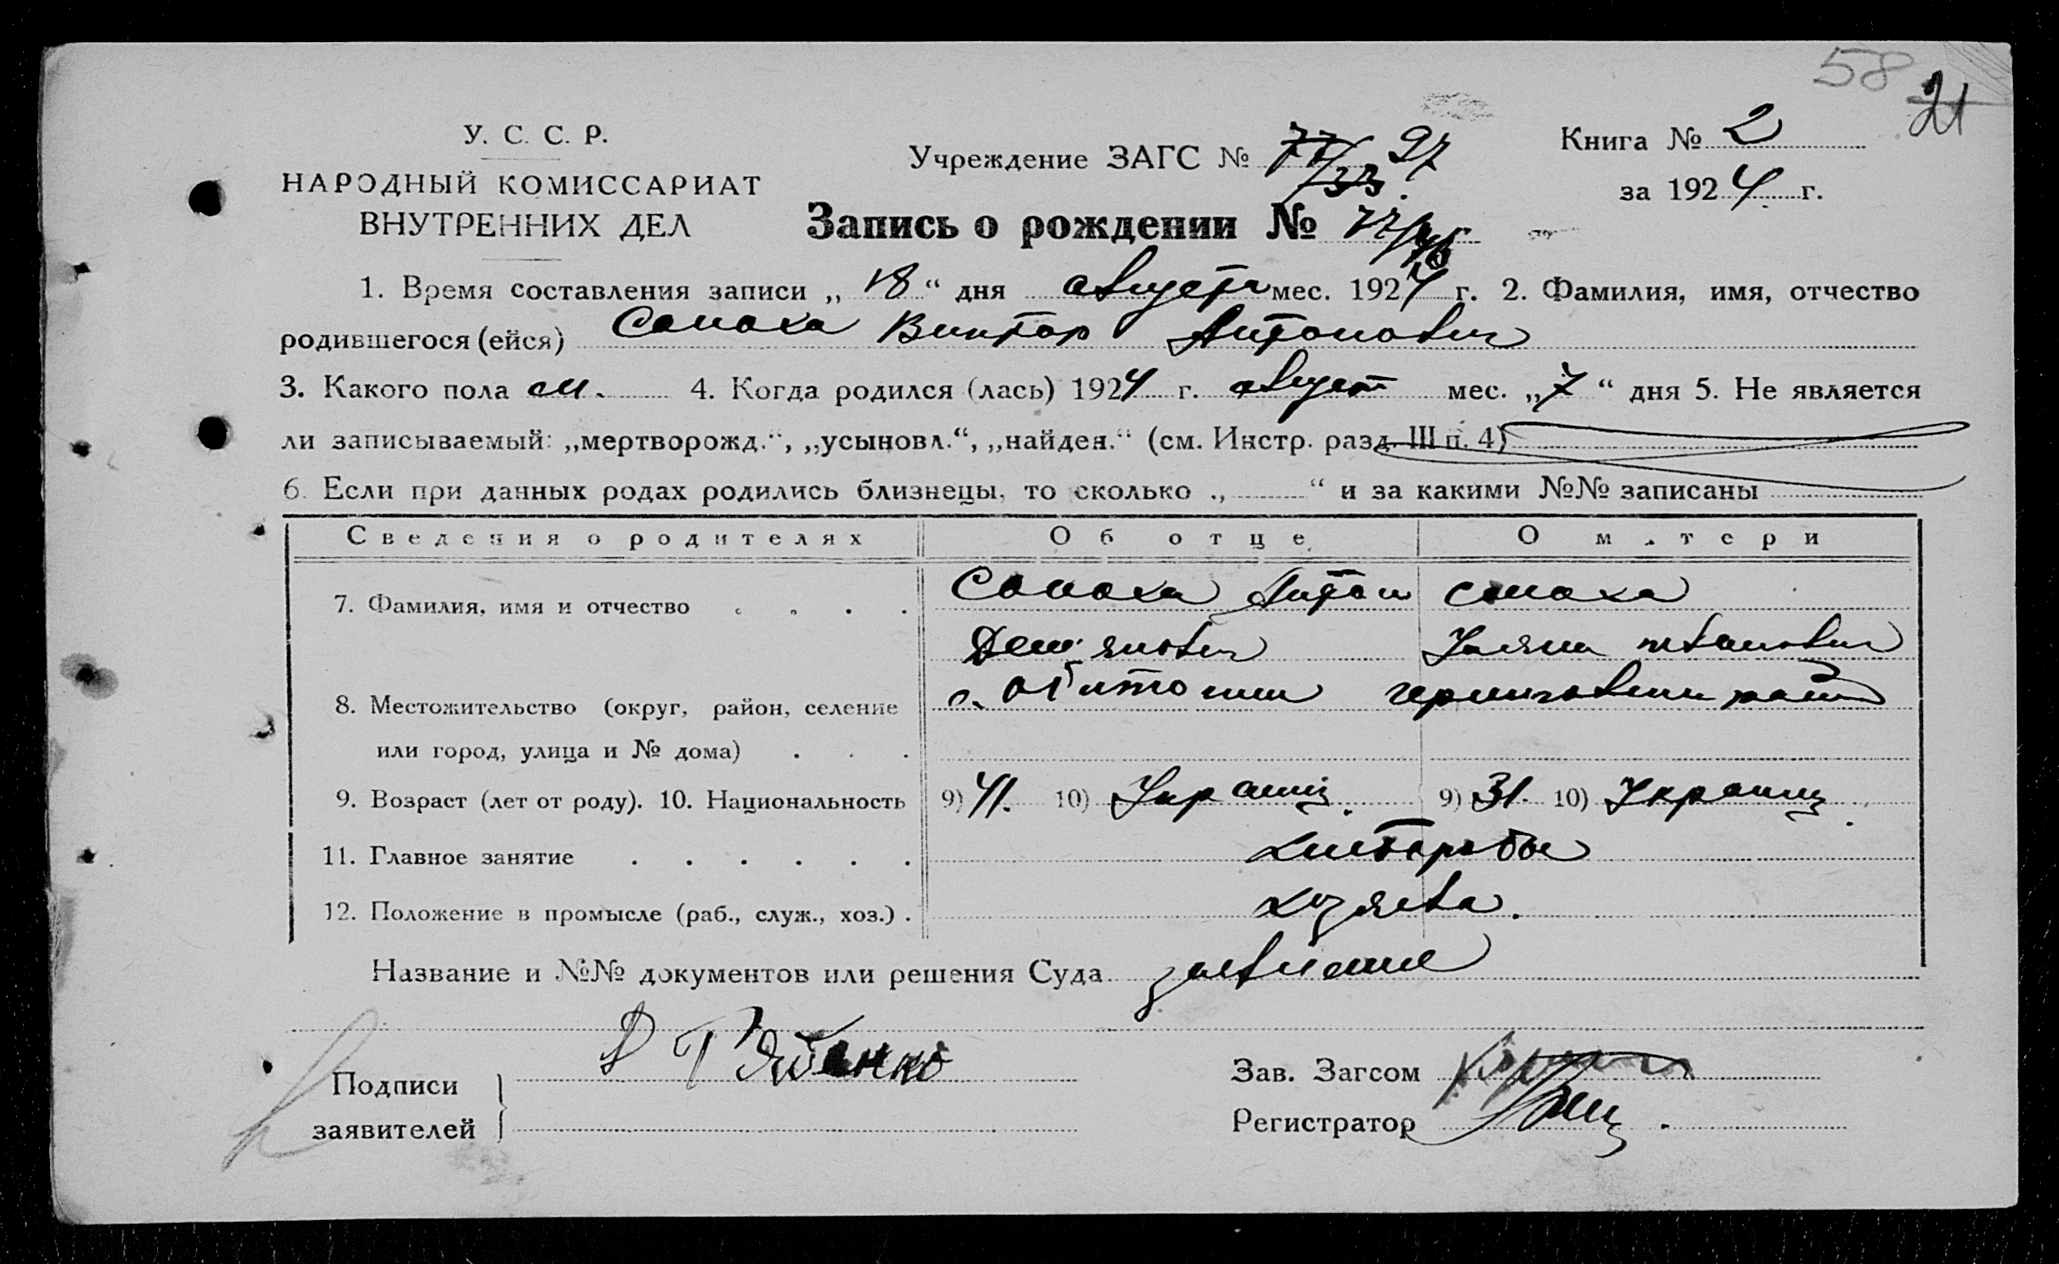 58
21
У. С. С. Р.
НАРОДНЫЙ КОМИССАРИАТ
ВНУТРЕННИХ ДЕЛ
Учреждение ЗАГС № 77/33. 27
Книга № 2
за 1924 г.
Запись о рождении №
1. Время составления записи „ 18 “ дня августа мес. 1924 г. 2. Фамилия, имя, отчество
родившегося (ейся) Сапоха Виктор Антонович
3. Какого пола м. 4. Когда родился (лась) 1924 г. август мес. „ 7 “ дня 5. Не является
ли записываемый: „мертворожд.“, „усыновл.“, „найден.“ (см. Инстр. разд. III п. 4)
6. Если при данных родах родились близнецы, то сколько „ “ и за какими №№ записаны
Сведения о родителях Об отце О матери
7. Фамилия, имя и отчество Сапоха Антон Сапоха
Демʼянович Уляна Ивановна
8. Местожительство (округ, район, селение с.
или город, улица и № дома)
9. Возраст (лет от роду). 10. Национальность 9) 41. 10) Украинц. 9) 31. 10) Украинц.
11. Главное занятие хлебороб
12. Положение в промысле (раб., служ., хоз.) хозяева.
Название и №№ документов или решения Суда заявление
Подписи
заявителей
Зав. Загсом
Регистратор